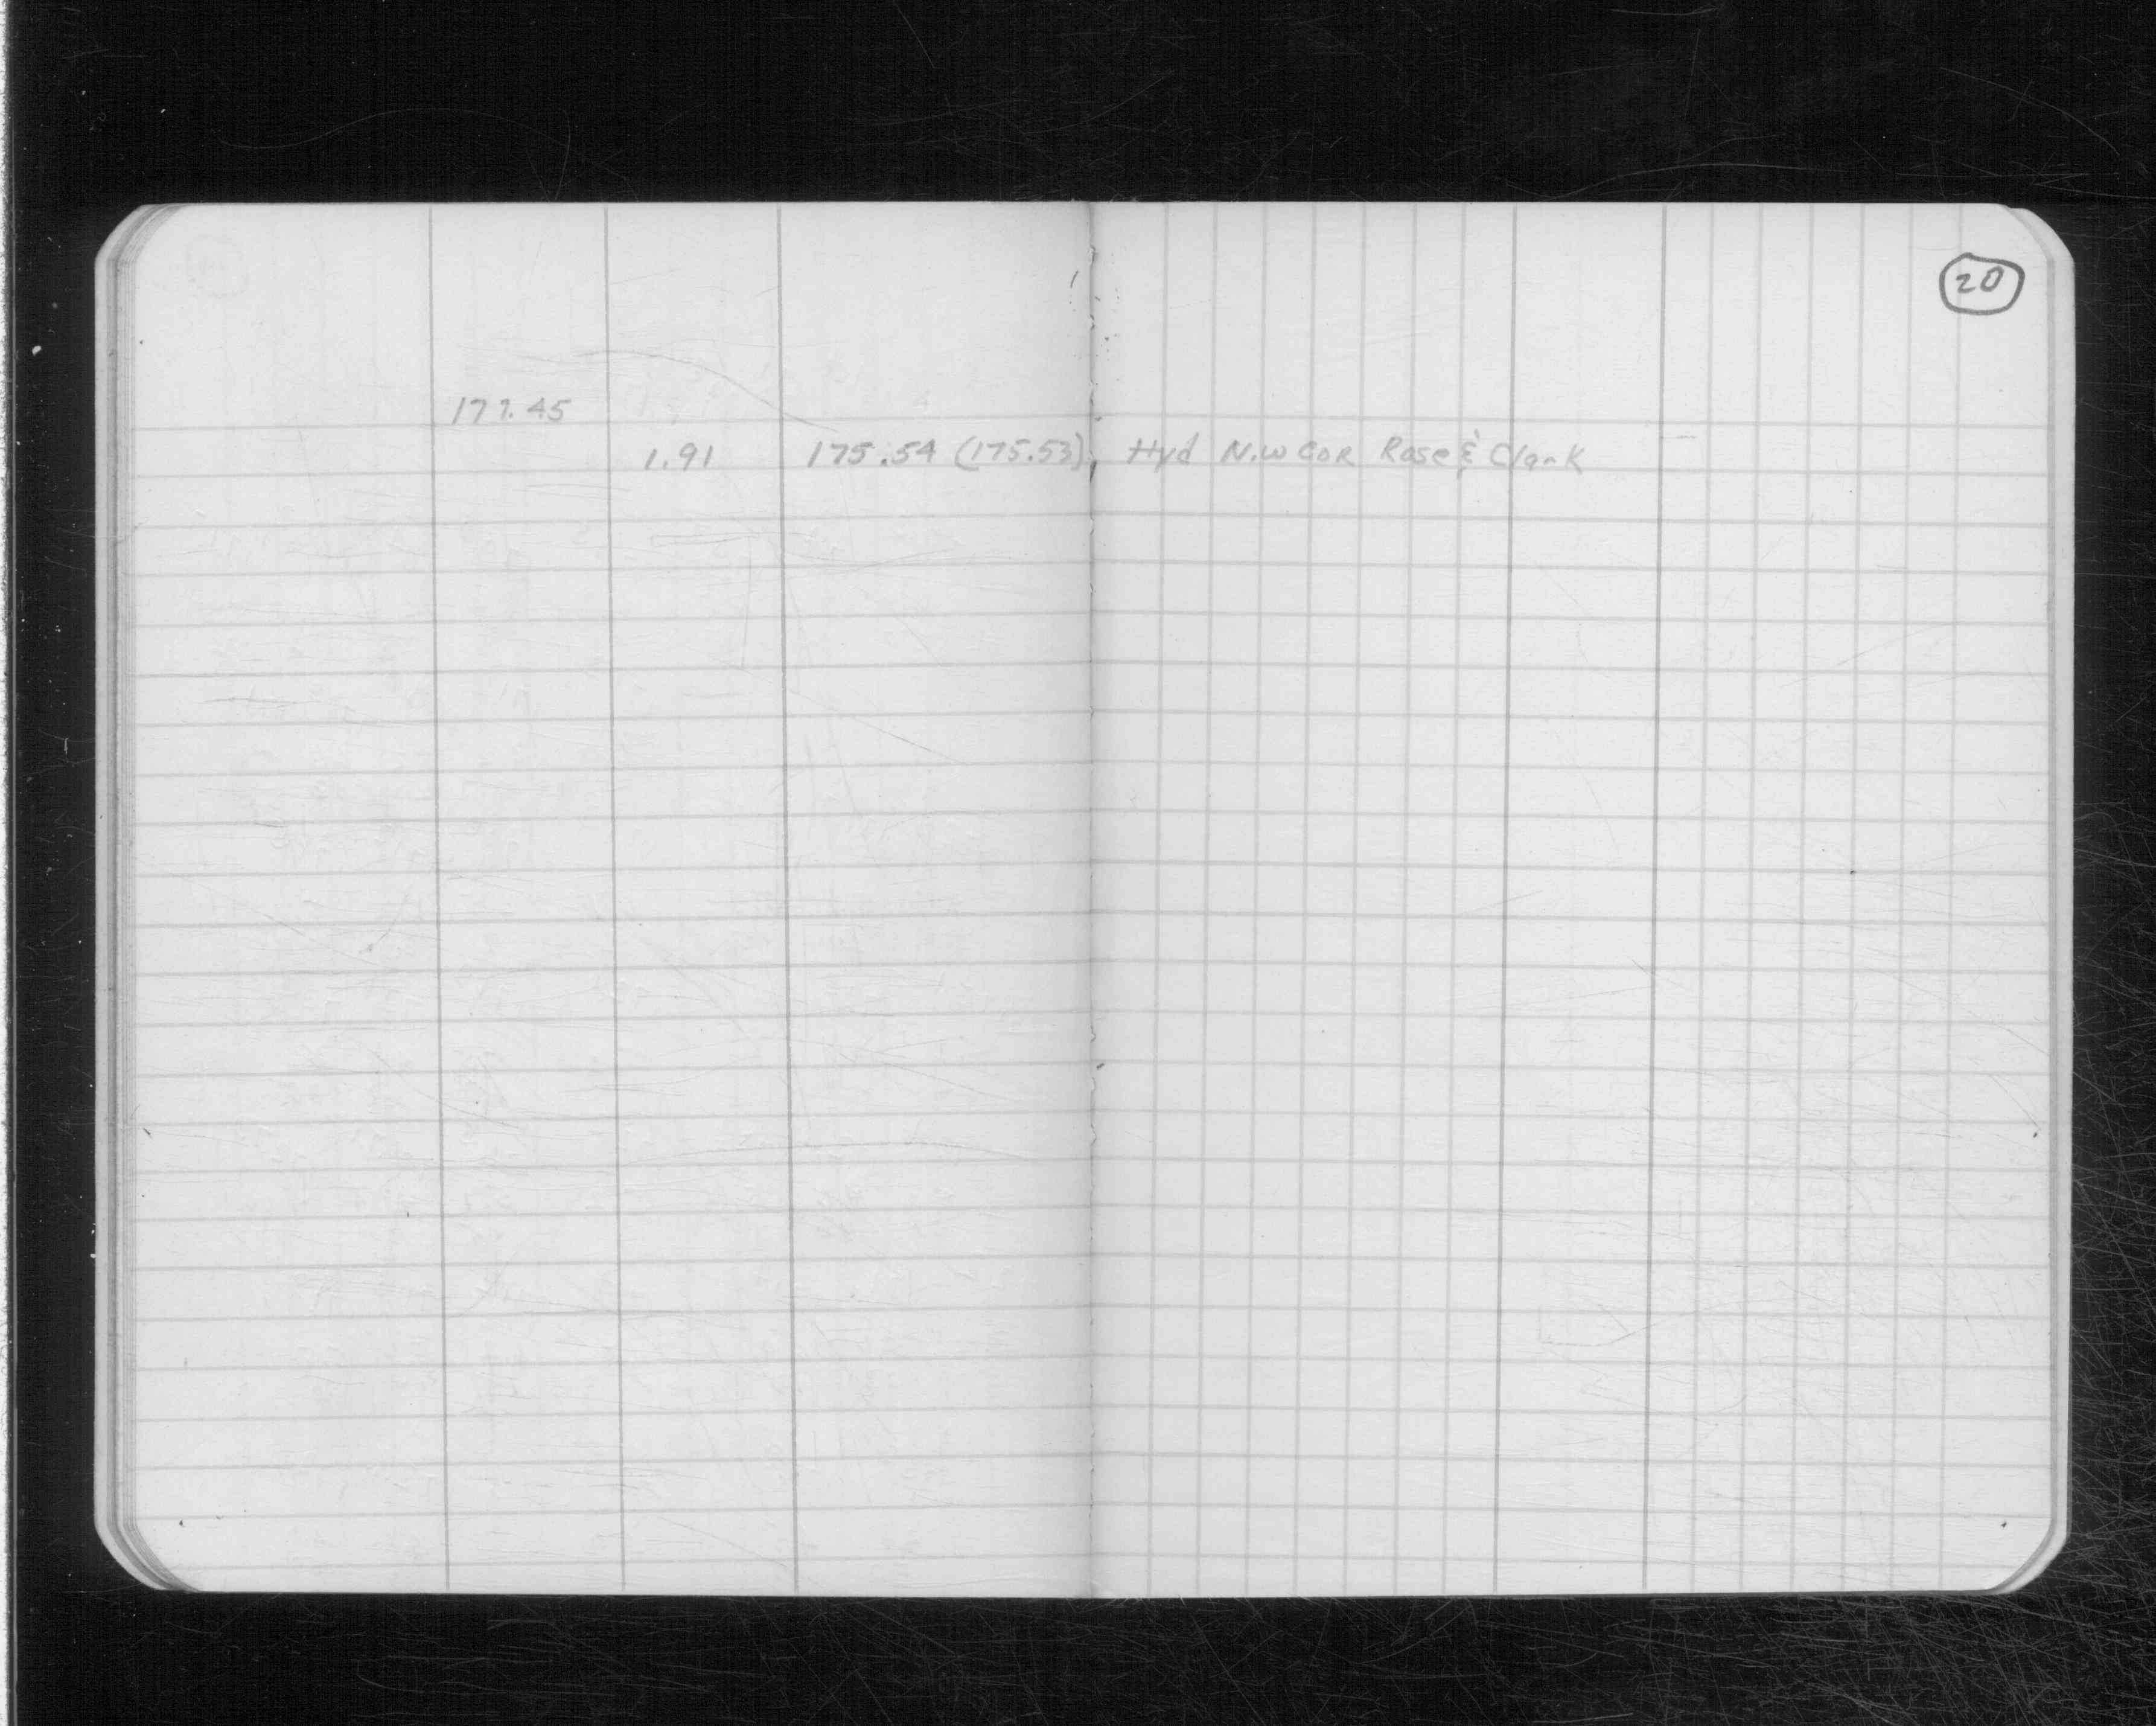 20
177.45
1.91 175.54 (175.53) Hyd N.W COR Rose & Clark